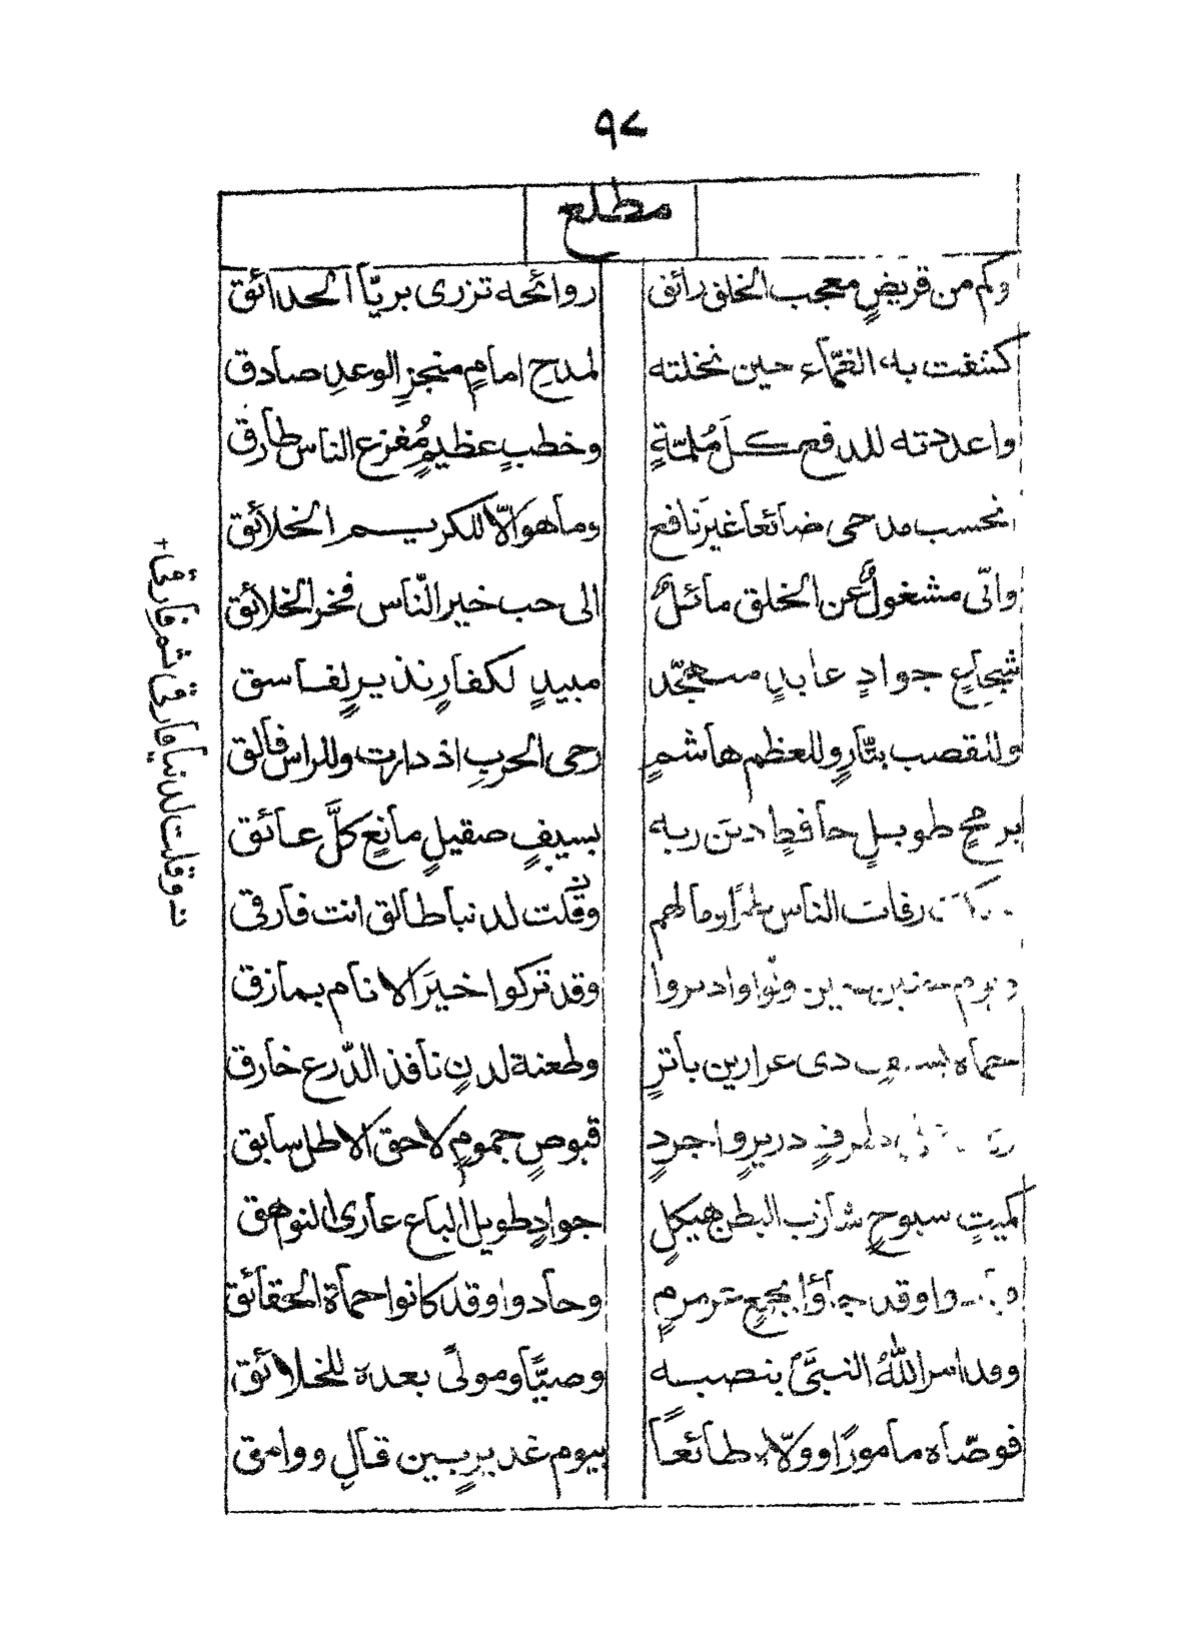 ٩٧
مطلع
وكم من قريضٍ معجب الخلق رائق روائحه تزرى بريّا الحدائق
كشفت به الغمّاء حين نخلته لمدحِ امامٍ منجزِ الوعدِ صادق
واعددته للدفع كلَ مُلمّةٍ وخطبٍ عظيمٍ مُفزع الناس طارق
نحسب مدحى ضائعا غيرَ نافع وما هو الّا للكريم الخلائق
وانّى مشغولٌ عن الخلق مائلٌ الى حب خير النّاس فخر الخلائق
شجاعٍ جوادٍ عابدٍ متهجّد مبيدٍ لكفارٍ نذيرٍ لفاسق
وللقصب بتّارٍ وللعظم هاشمٍ رحى الحربِ اذ دارت وللراس فالق
برمحٍ طويلٍ حافظٍ دين ربه بسيفٍ صقيلٍ مانعٍ كلَّ عائق
رفات الناس طرًا مالهم وقلت لدنيا طالق انت فارقى
حنين حين ولّوا وادبروا وقد تركوا خيرَ الانام بمازق
حماه ذى عرارين باترٍ وطعنة لدنٍ نافذ الدّرع خارق
طرفٍ دريرٍ واجردٍ قبوصٍ جمومٍ لاحق الاطل سابق
كميتٍ سبوحٍ شازب البطن هيكلٍ جوادٍ طويل الباع عارى النواهق
وقد جاؤا بجمعٍ عرمرمٍ وحادوا وقد كانوا حماة الحقائق
وقد امر اللهُ النبىَّ بنصبه وصيًّا ومولىً بعده للخلائق
فوصّاه مامورًا وولّاه طائعاً بيوم غديرٍ بين قالٍ ووامق
ت وقلت لدنيا فارقى ثم فارق +